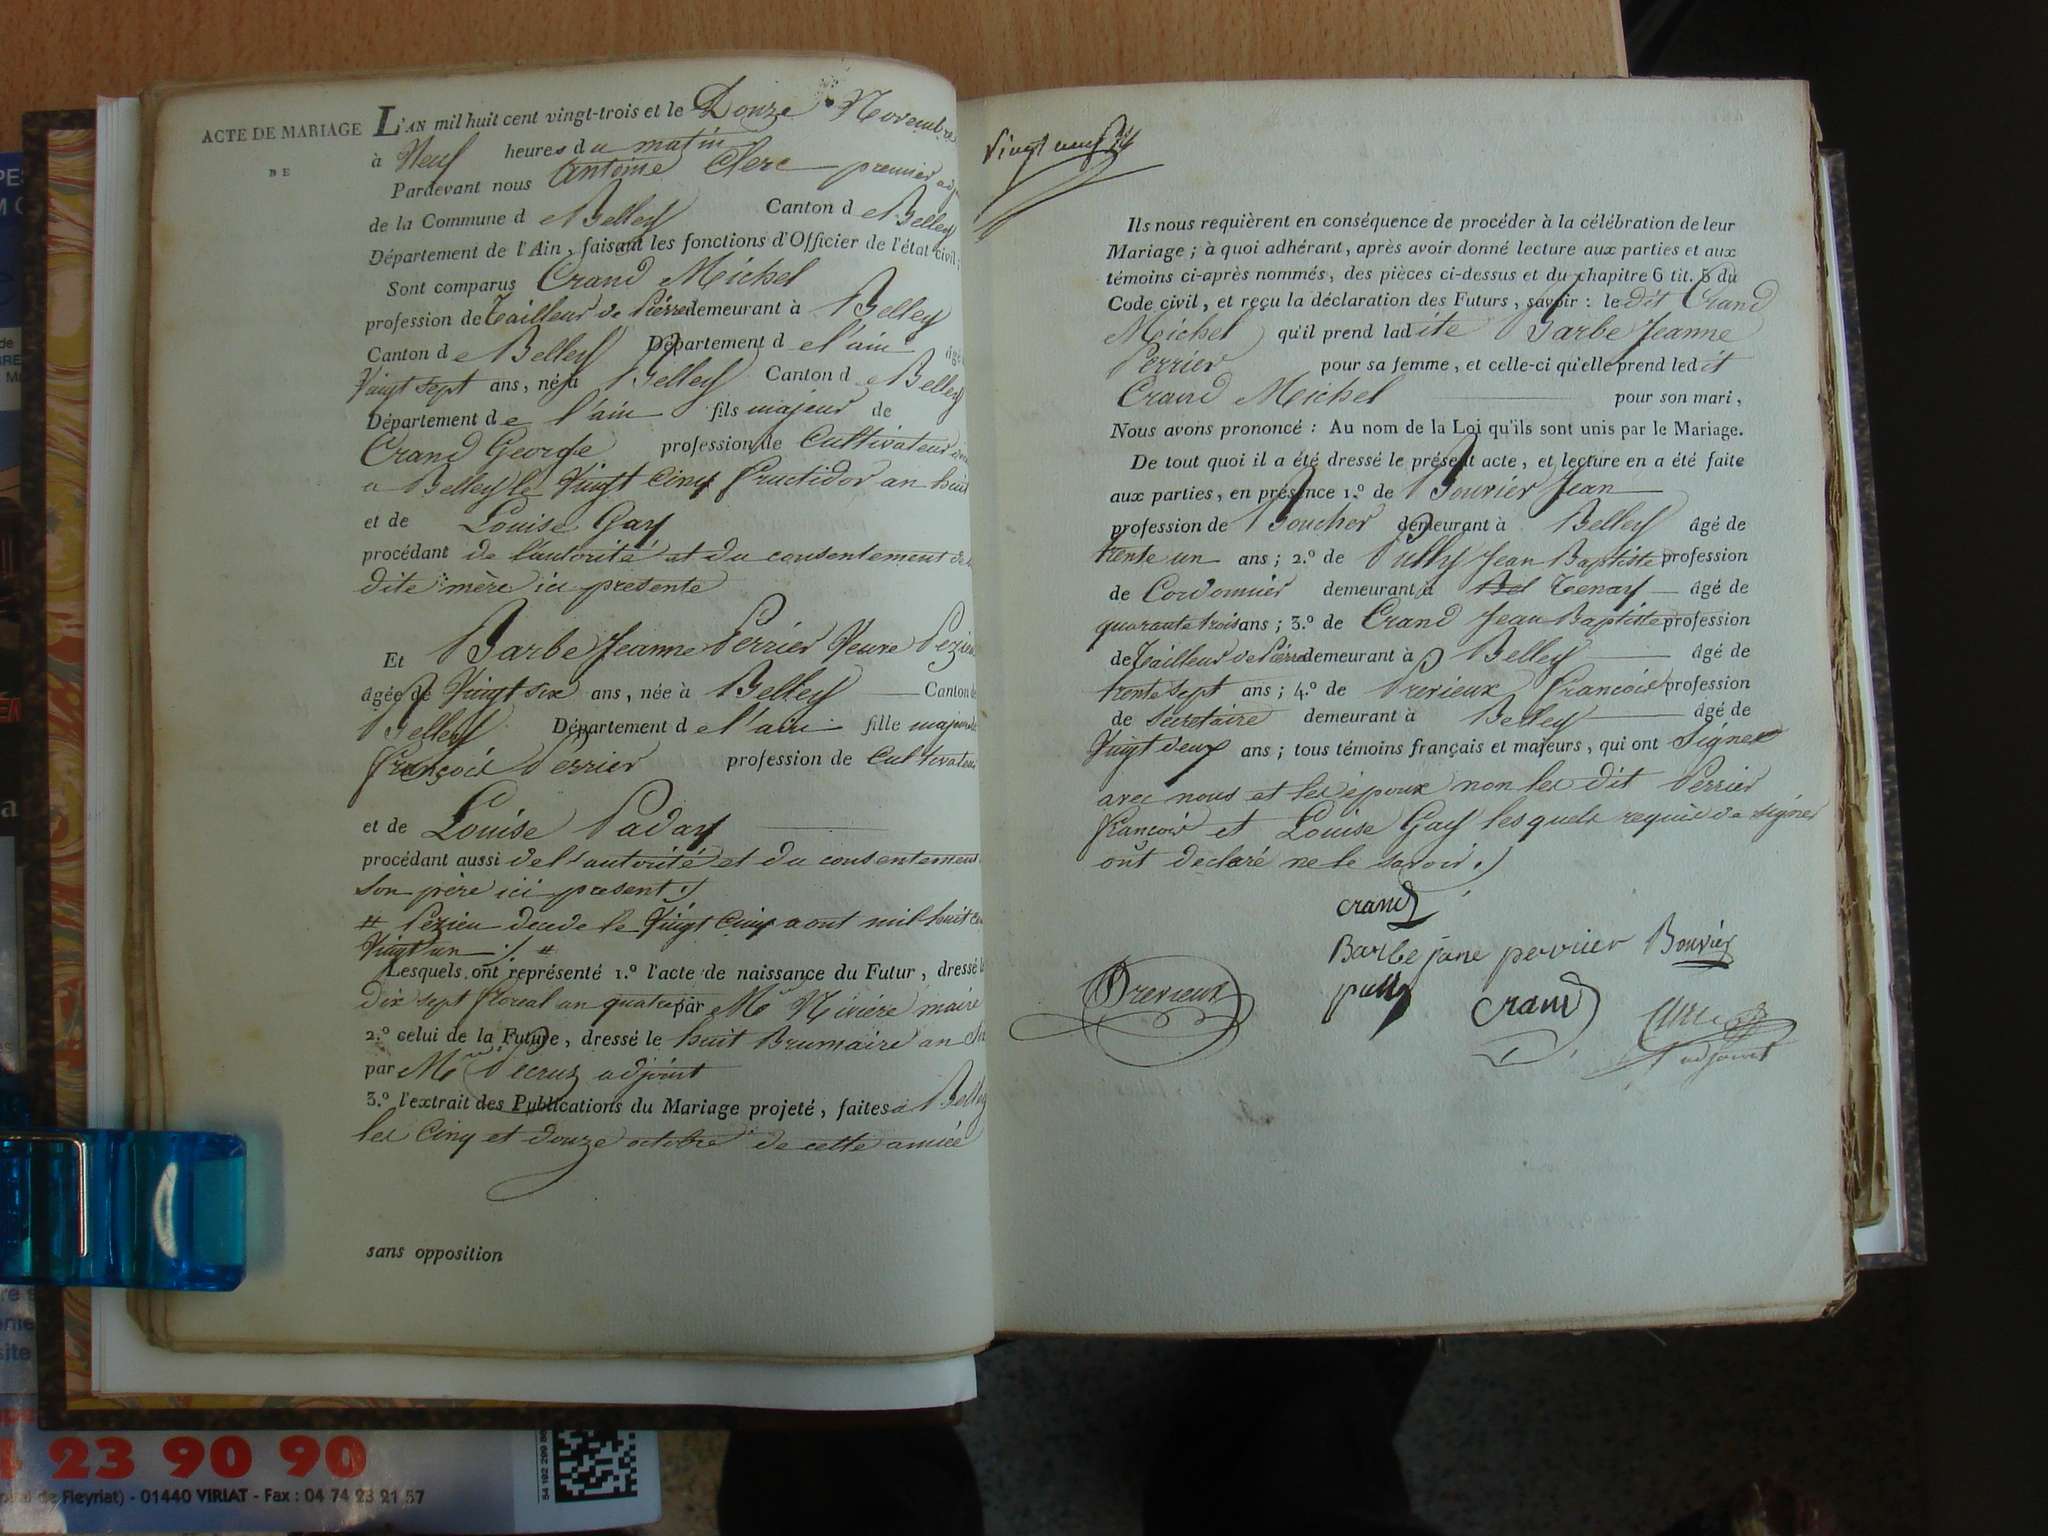 ACTE DE MARIAGE
DE
L'AN mil huit cent vingt-trois et le Douze Novembre
à Neuf heures du matin
Pardevant nous Antoine Clerc premier adj
de la Commune de Belley Canton de Belley
Département de l'Ain, faisant les fonctions d'Officier de l'état civil;
Sont comparus Crand Michel
profession de Tailleur de Pierre demeurant à Belley
Canton de Belley Département de l'ain âgé
Vingt sept ans, né à Belley Canton de Belley
Département de l'ain fils majeur de
Crand George profession de Cultivateur
a Belley le Vingt Cinq fructidor an huit
et de Louise Gay
procédant de l'autorité et du consentement de
dite mère ici presente
Et Barbe Jeanne Perrier Veuve Pezieu
âgée de Vingt six ans, née à Belley Canton de
Belley Département de l'ain fille majeure
françois Perrier profession de Cultivateur
et de Louise Paday
procédant aussi de l'autorité et du consentement
son père ici present ./
# Pezieu decede le Vingt Cinq aout mil huit cent
Vingt un ./ #
Lesquels ont représenté 1.º l'acte de naissance du Futur, dressé le
dix sept floreal an quatre par Mr Rivière maire
2.º celui de la Future, dressé le huit Brumaire an
par Mr Decruz adjoint
3.º l'extrait des Publications du Mariage projeté, faites à Belley
les Cinq et douze octobre de cette année
sans opposition
Vingt neuf
Ils nous requièrent en conséquence de procéder à la célébration de leur
Mariage; à quoi adhérant, après avoir donné lecture aux parties et aux
témoins ci-après nommés, des pièces ci-dessus et du chapitre 6 tit. 5 du
Code civil, et reçu la déclaration des Futurs, savoir: le dit Crand
Michel qu'il prend ladite Barbe Jeanne
Perrier pour sa femme, et celle-ci qu'elle prend ledit
Crand Michel pour son mari,
Nous avons prononcé: Au nom de la Loi qu'ils sont unis par le Mariage.
De tout quoi il a été dressé le présent acte, et lecture en a été faite
aux parties, en présence 1.º de Bouvier Jean
profession de Boucher demeurant à Belley âgé de
trente un ans; 2.º de Pully Jean Baptiste profession
de Cordonnier demeurant à Bel Tenay âgé de
quarante trois ans; 3.º de Crand Jean Baptiste profession
de Tailleur de Pierre demeurant à Belley âgé de
trente sept ans; 4.º de Prerieux François profession
de Secretaire demeurant à Belley âgé de
Vingt deux ans; tous témoins français et majeurs, qui ont Signer
avec nous et les époux non les dit Perrier
françois et Louise Gay lesquels requis de signer
ont declaré ne le savoir ./
crand
Barbe jane perrier Bouvier
Prerieux pully crand Clerc
adjoint
23 90 90
de Fleyriat) - 01440 VIRIAT - Fax : 04 74 23 21 57